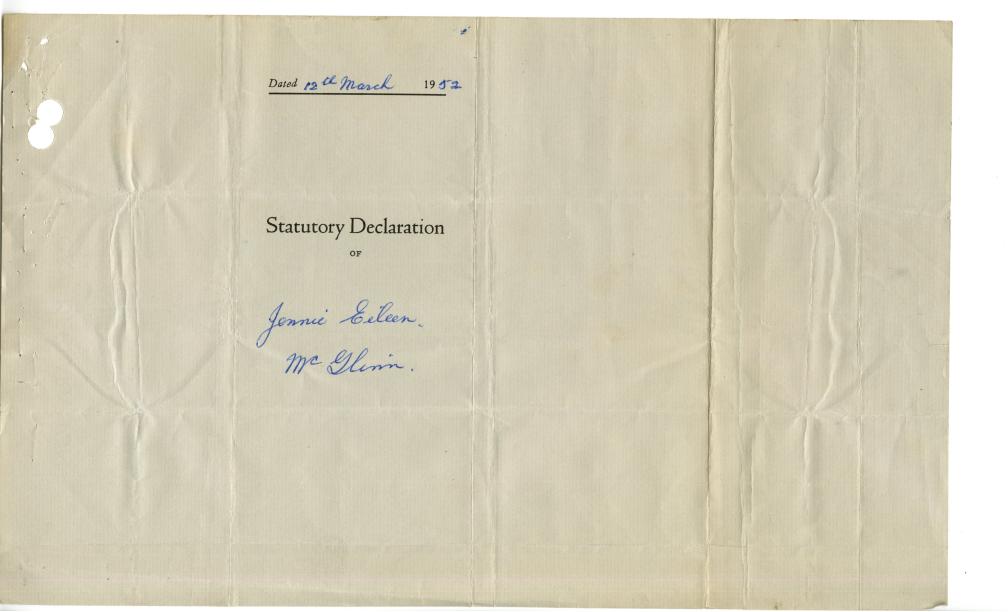 Dated 12th March 1952
Statutory Declaration
OF
Jennie Eileen.
Mc Glinn.